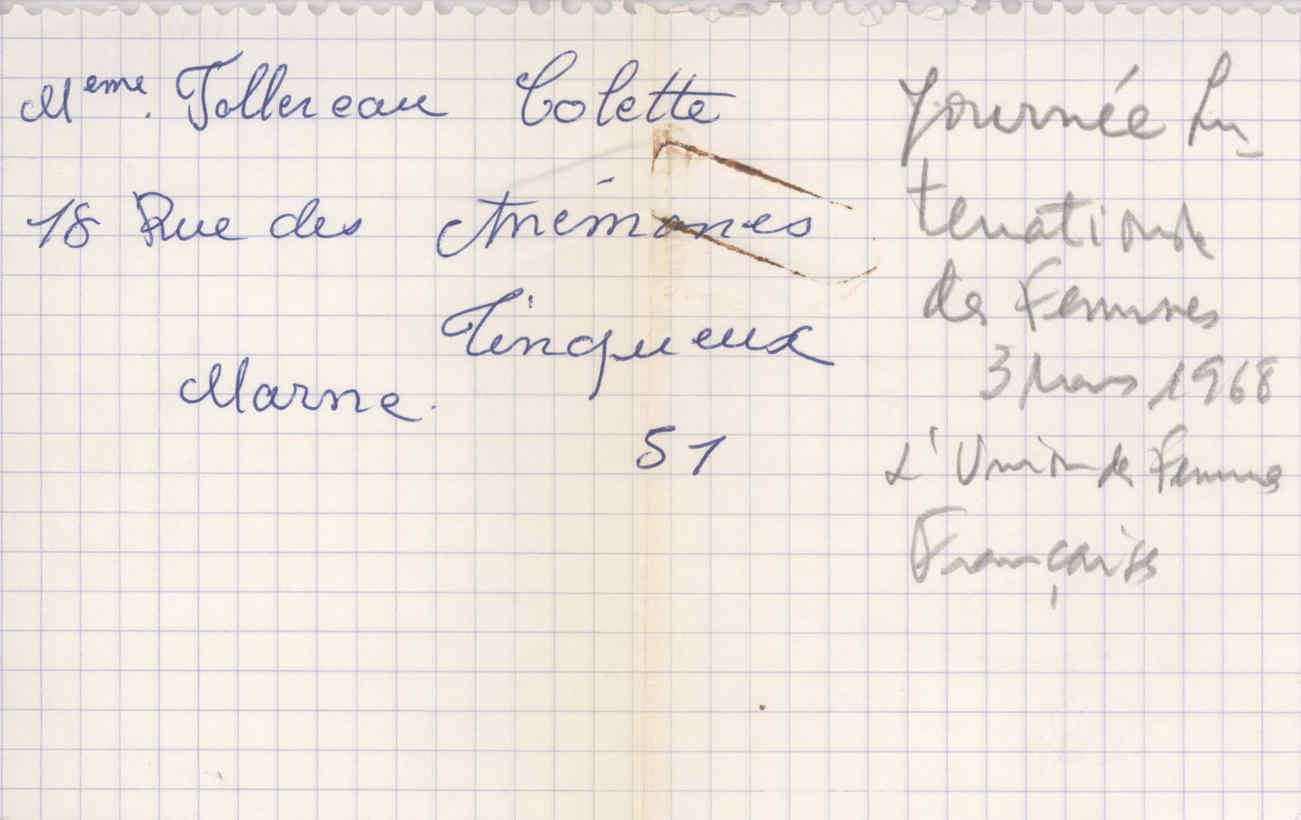 Meme. Tollereau Colette
18 Rue des Anémones
Tinqueux
Marne.
51
Journée In-
ternationale
des Femmes
3 Mars 1968
L'Union des Femmes
Françaises